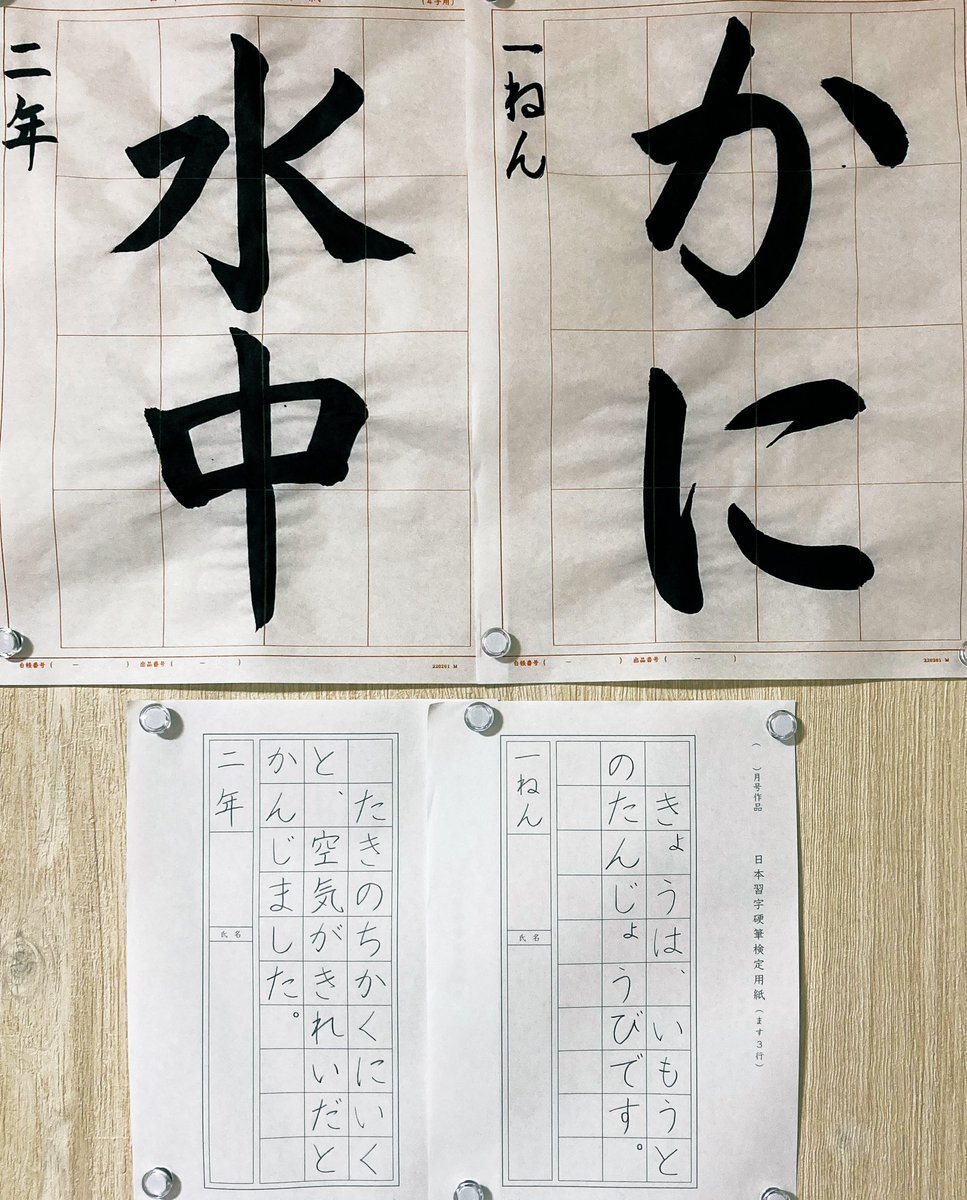 かに
一ねん
水中
二年
自帳番号( － ) 出品番号( － )
自帳番号( － ) 出品番号( － )
( )月号作品 日本習字硬筆検定用紙(ます3行)
きょうは、いもうと
のたんじょうびです。
一ねん
氏名
たきのちかくにいく
と、空気がきれいだと
かんじました。
二年
氏名